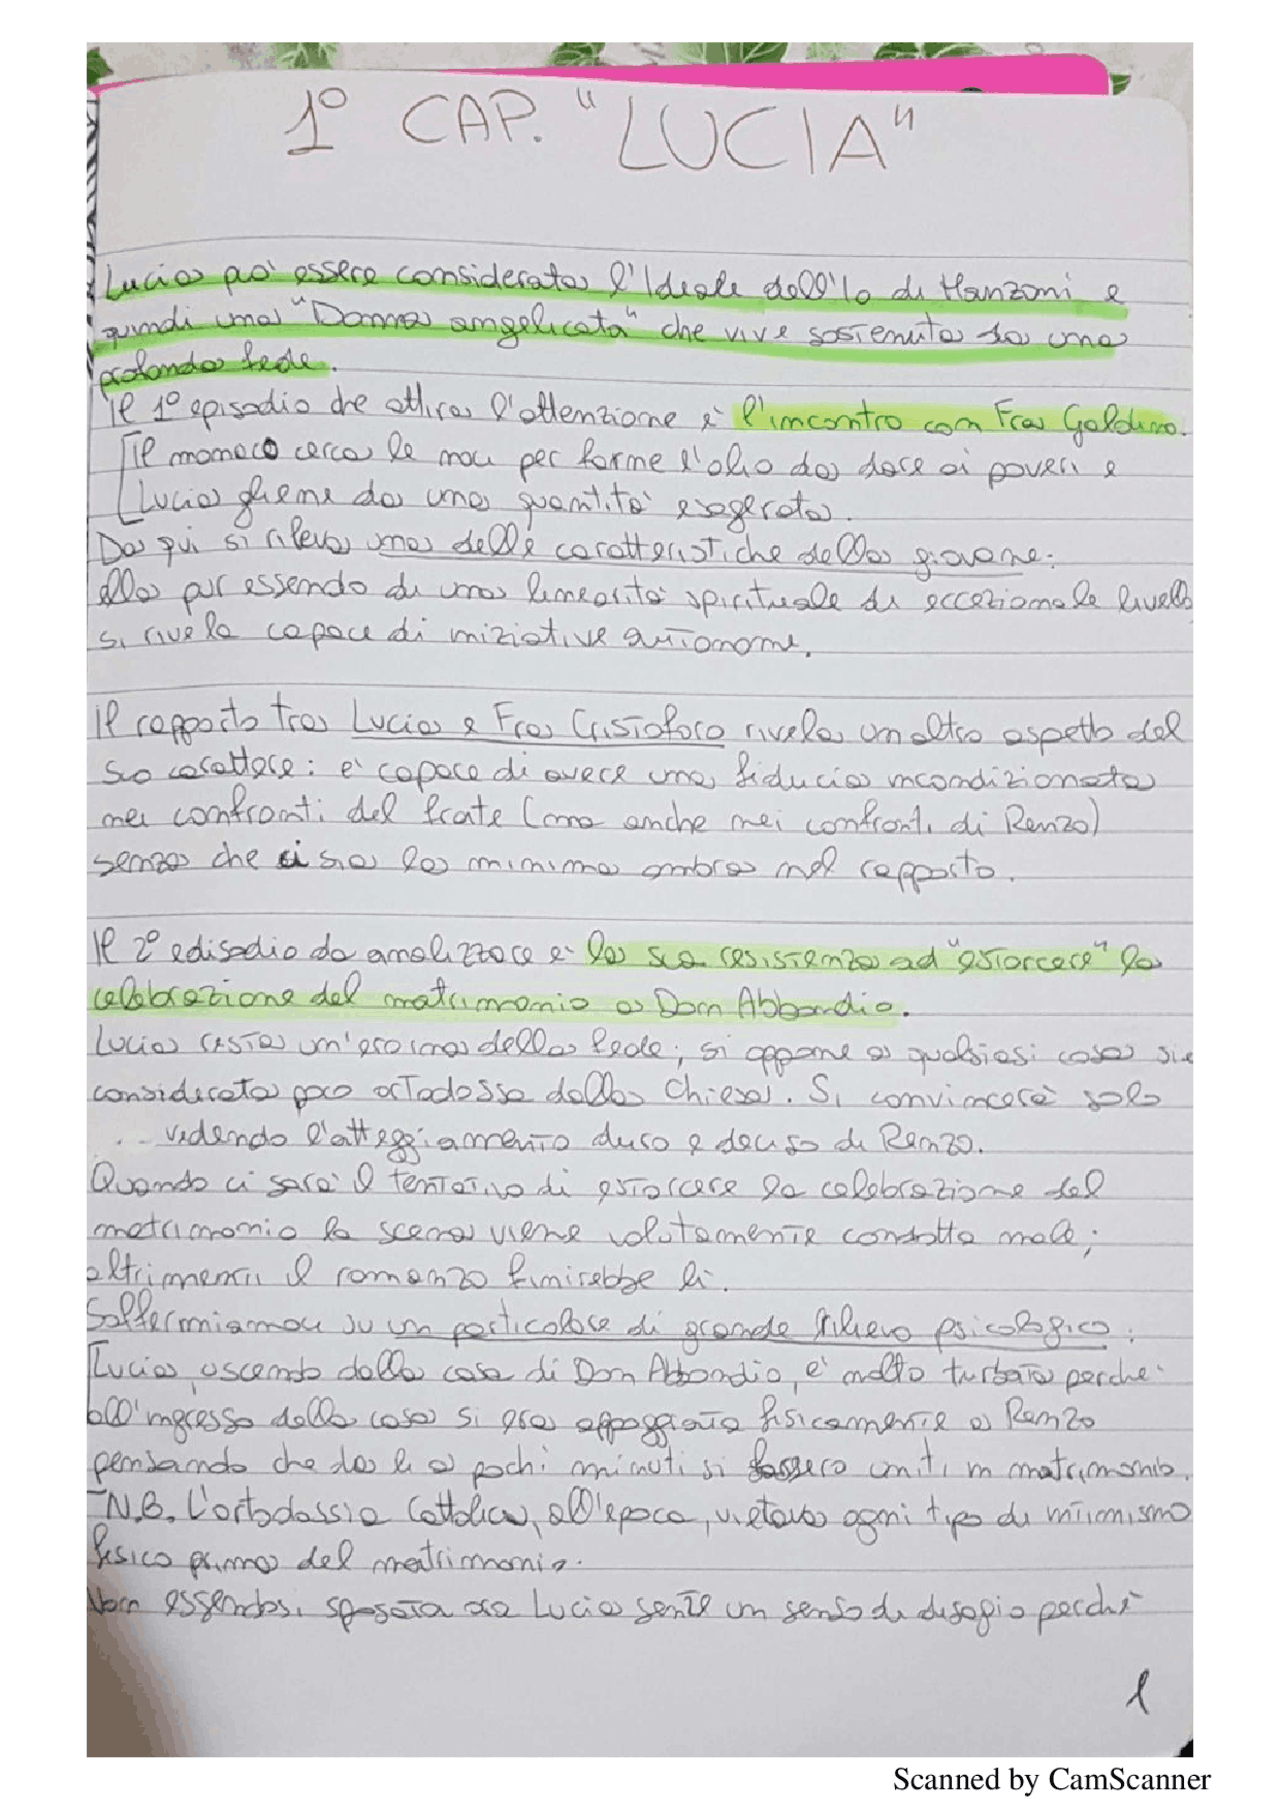 1° CAP. "LUCIA"
Lucia può essere considerata l'Ideale dell'Io di Manzoni e
quindi una "Donna angelicata" che vive sostenuta da una
profonda fede.
Il 1° episodio che attira l'attenzione è l'incontro con Fra Galdino.
Il monaco cerca le noci per farne l'olio da dare ai poveri e
Lucia gliene da una quantità esagerata.
Da qui si rileva una delle caratteristiche della giovane:
ella pur essendo di una linearità spirituale di eccezionale livello
si rivela capace di iniziative autonome.
Il rapporto tra Lucia e Fra Cristoforo rivela un altro aspetto del
suo carattere: è capace di avere una fiducia incondizionata
nei confronti del frate (ma anche nei confronti di Renzo)
senza che ci sia la minima ombra nel rapporto.
Il 2° edisodio da analizzare è la sua resistenza ad "estorcere" la
celebrazione del matrimonio a Don Abbondio.
Lucia resta un'eroina della fede; si oppone a qualsiasi cosa sia
considerata poco ortodossa dalla Chiesa. Si convincerà solo
vedendo l'atteggiamento duro e deciso di Renzo.
Quando ci sarà il tentativo di estorcere la celebrazione del
matrimonio la scena viene volutamente condotta male;
altrimenti il romanzo finirebbe lì.
Soffermiamoci su un particolare di grande rilievo psicologico:
Lucia, uscendo dalla casa di Don Abbondio, è molto turbata perchè
all'ingresso della casa si era appoggiata fisicamente a Renzo
pensando che da lì a pochi minuti si fossero uniti in matrimonio.
N.B. L'ortodossia Cattolica, all'epoca, vietava ogni tipo di intimismo
fisico prima del matrimonio.
Non essendosi sposata ora Lucia sente un senso di disagio perchè
1
Scanned by CamScanner